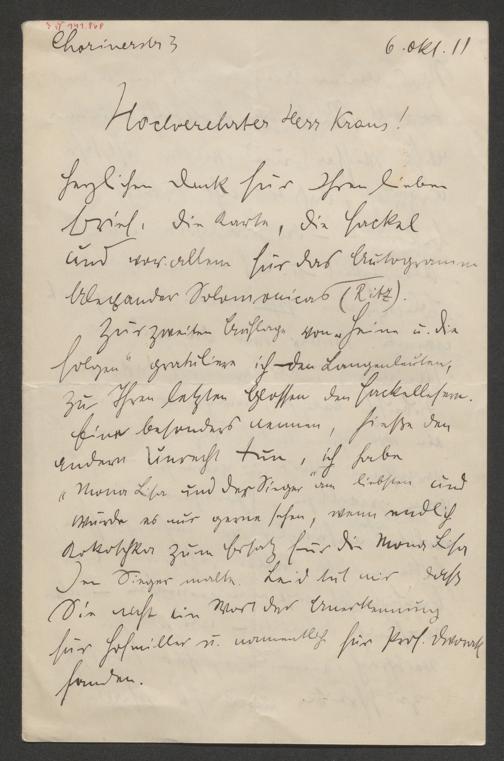 Chorinerstr 3 6. Okt. 11
Hochverehrter Herr Kraus!
herzlichen Dank für Ihren lieben
Brief, die Karte, die Fackel
und vor allem für das Autogramm
Alexander Solomonicas (Ritz).
Zur zweiten Auflage von „Heine u. die
Folgen" gratuliere ich den Langenleuten,
zu Ihren letzten Glossen den Fackellesern.
Eine besonders nennen, hieße den
andern Unrecht tun, ich habe
„Mona Lisa und der Sieger" am liebsten und
würde es nur gerne sehen, wenn endlich
Kokoschka zum Ersatz für die Mona Lisa
Den Sieger malte. Leid tut mir, daß
Sie nicht ein Wort der Anerkennung
für Hofmiller u. namentlich für Prof. Dvorak
fanden.